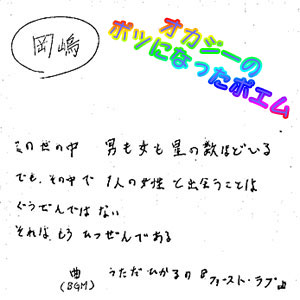 岡嶋
オカジーの
ボツになったポエム
この世の中 男も女も星の数ほどいる
でも、その中で 1人の女性と出会うことは
ぐうぜんではない
それは、もう ひつぜんである
曲 うただひかるの『ファースト・ラブ』
(BGM)